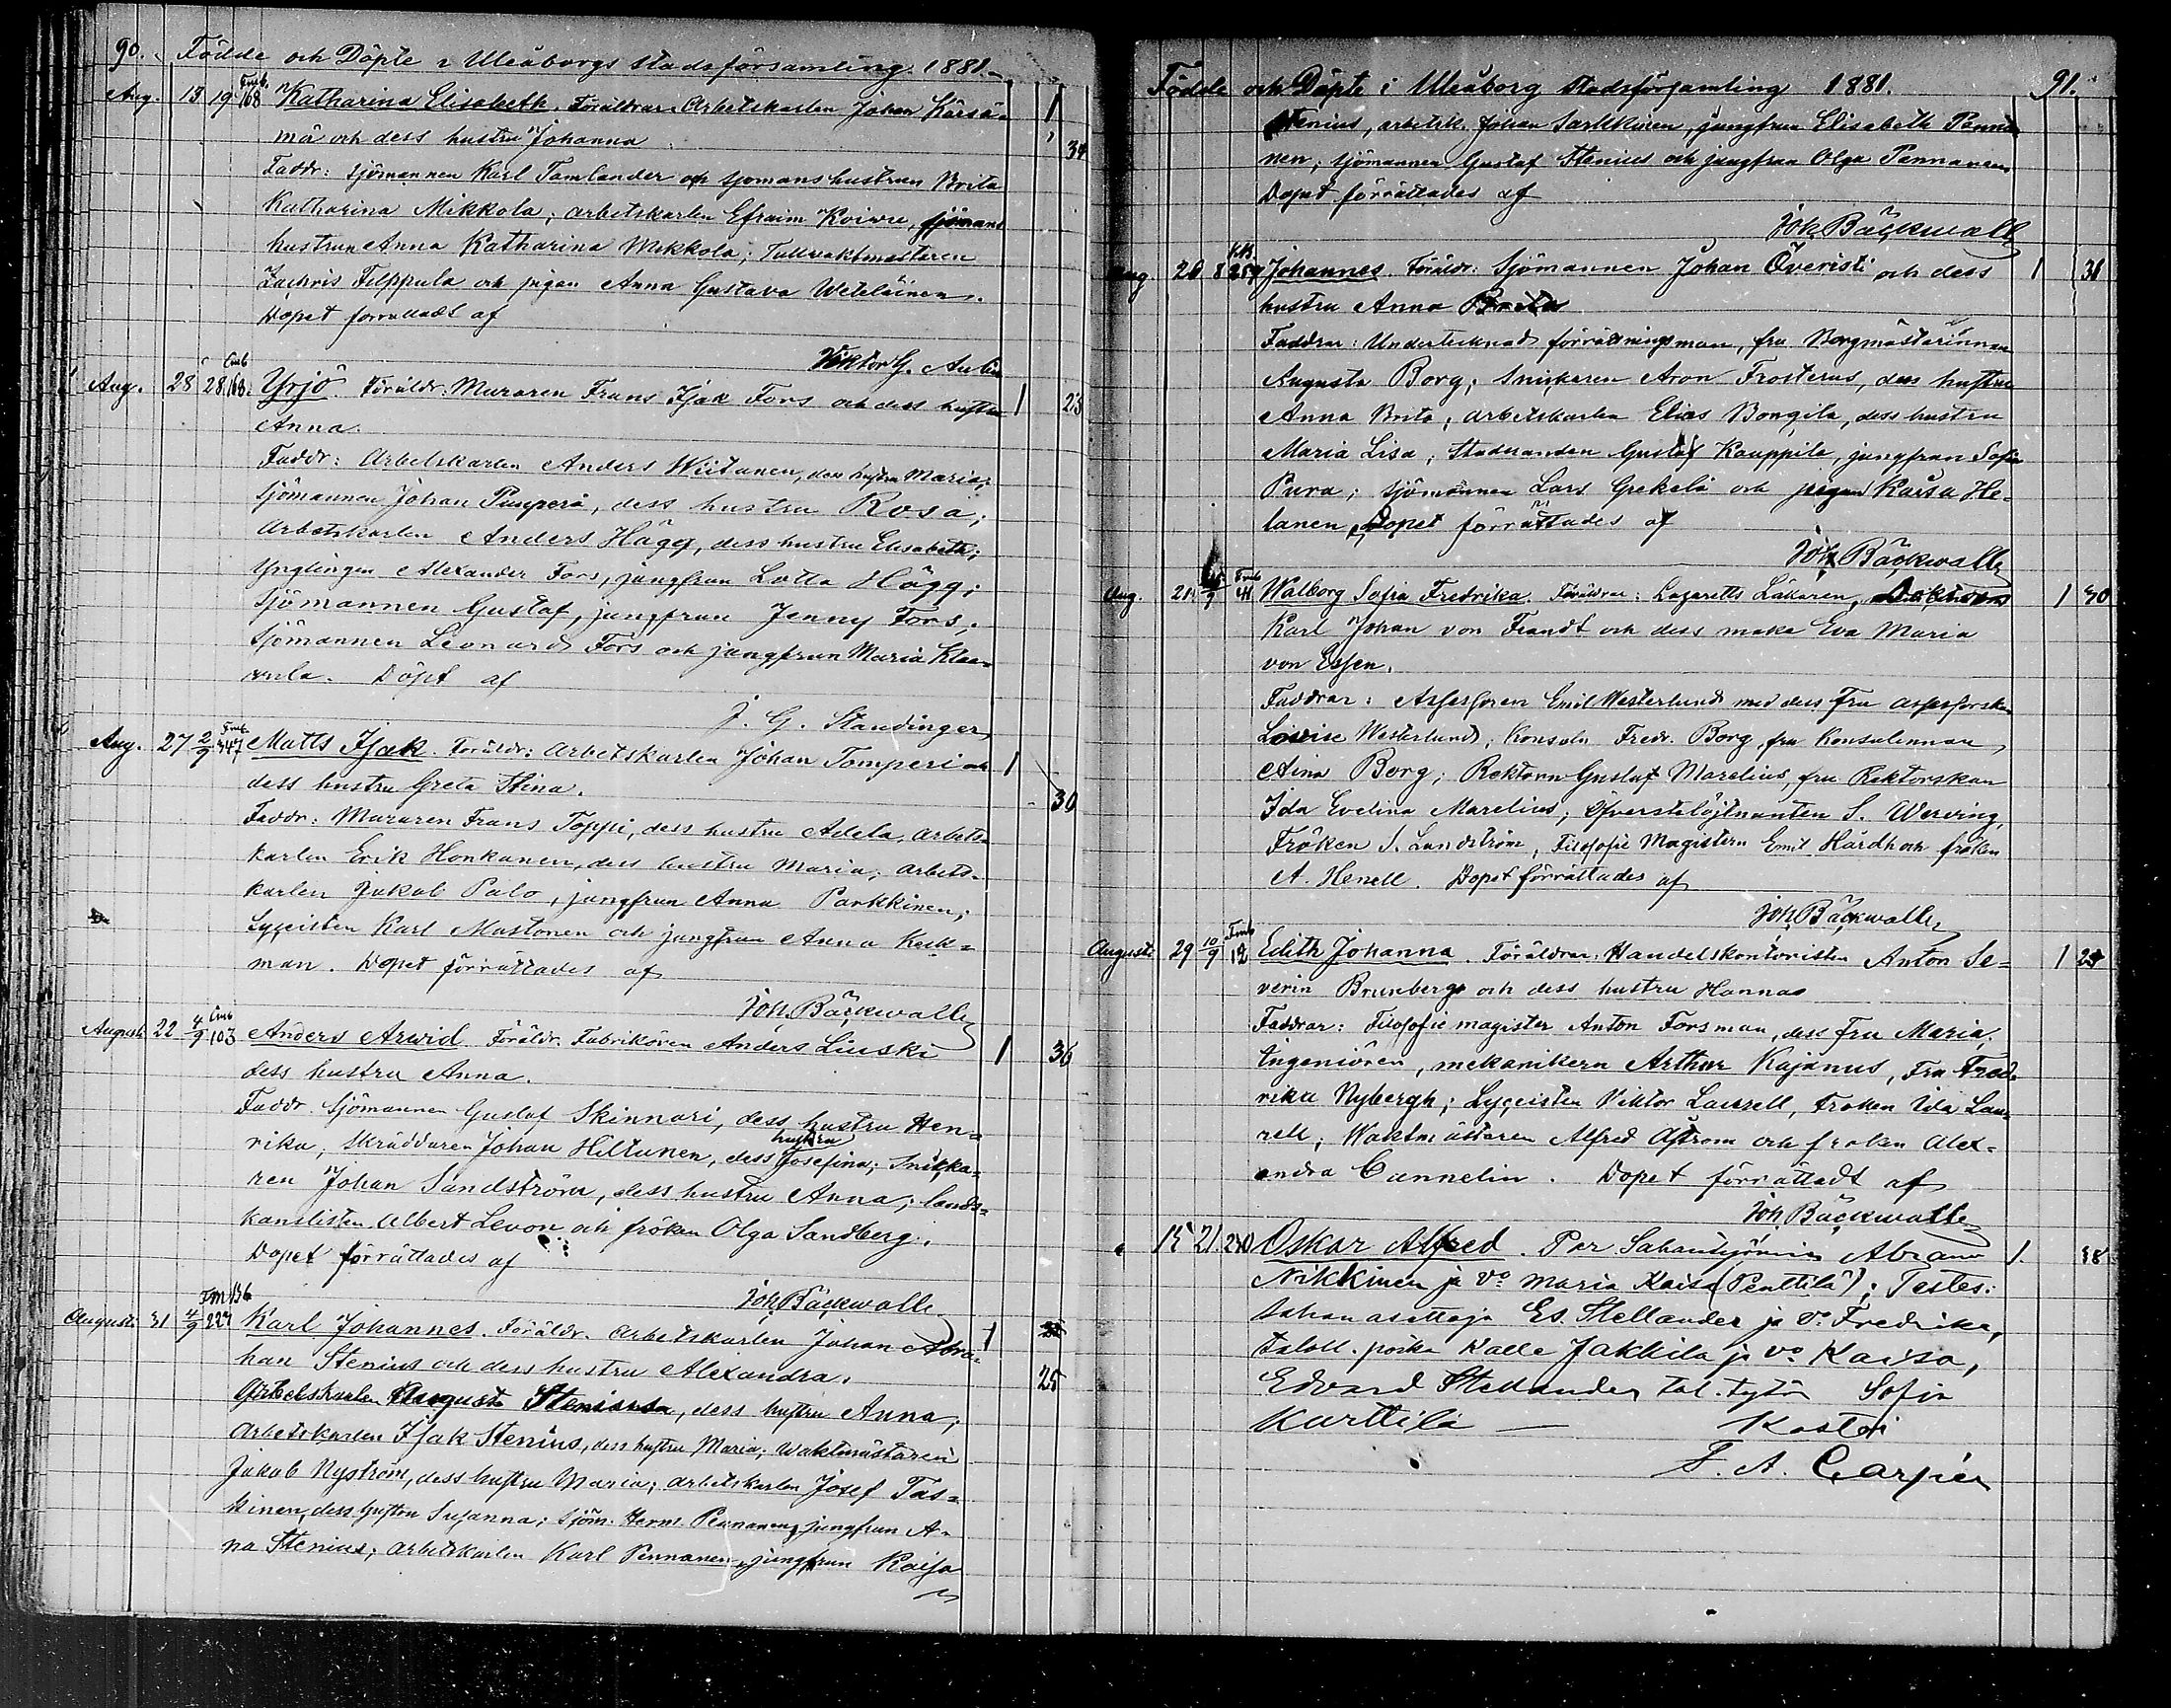 90. Födde och Döpte i Uleåborgs stadsförsamling. 1881.
Aug. 13 19 Fmb. 168 Katharina Elisabeth. Föräldrar: Arbetskarlen Johan Kärsä= 1
mä och dess hustru Johanna 34
Faddr: sjömannen Karl Tamlander och sjömanshustrun Brita
Katharina Mikkola; arbetskarlen Efraim Koivu, sjömans
hustrun Anna Katharina Mikkola; Tullvaktmästaren
Zachris Filppula och pigan Anna Gustava Weteläinen.
Dopet förrättadt af
Viktor G. Aulin
Aug. 28 28 Cmb 168. Yrjö. Föräldr: Muraren Frans Isak Fors och dess hustru 1 23
Anna.
Faddr: Arbetskarlen Anders Wiitanen, dess hustru Maria;
sjömannen Johan Pumperi, dess hustru Rosa;
Arbetskarlen Anders Hägg, dess hustru Elisabeth;
Ynglingen Alexander Fors, jungfrun Lotta Hägg;
Sjömannen Gustaf, jungfrun Jenny Fors;
Sjömannen Leonard Fors och jungfrun Maria Klaa=
vula. Döpt af
J. G. Standinger
Aug. 27 2/9 Fmb. 347 Matts Isak. Föräldr: Arbetskarlen Johan Tomperi och 1
dess hustru Greta Stina. 30
Faddr: Muraren Frans Toppi, dess hustru Adela, arbets=
karlen Erik Honkanen, dess hustru Maria; arbets=
karlen Jakob Palo, jungfrun Anna Parkkinen;
Lyceisten Karl Mustonen och jungfrun Anna Keck=
man. Dopet förrättades af
Joh. Bäckwall
August 22 4/9 Cmb 103 Anders Arwid Föräldr. Fabrikören Anders Liuski 1 36
dess hustru Anna.
Faddr. Sjömannen Gustaf Skinnari, dess hustru Hen=
rika; Skräddaren Johan Hiltunen, dess hustru Josefina; Snicka=
ren Johan Sandström, dess hustru Anna; lands=
kanslisten Albert Levon och fröken Olga Sandberg.
Dopet förrättades af
Joh. Bäckwall
August 31 4/9 Fmb 227 Karl Johannes. Föräldr. Arbetskarlen Johan Abra= 1
ham Stenius och dess hustru Alexandra. 25
Arbetskarlen August Stenius, dess hustru Anna;
Arbetskarlen Isak Stenius, dess hustru Maria; waktmästaren
Jakob Nyström, dess hustru Maria; arbetskarlen Josef Tas=
kinen, dess hustru Susanna; sjöm. Herm. Pennanen, jungfrun An=
na Stenius; arbetskarlen Karl Pennanen, jungfrun Kaisa
Födde och Döpte i Uleåborg stadsförsamling 1881. 91.
Stenius, arbetsk. Johan Sarkkinen, jungfrun Elisabeth Penna
nen; sjömannen Gustaf Stenius och jungfrun Olga Pennanen
Dopet förrättades af
Joh. Bäckwall
Aug. 20 8 KB. 259 Johannes. Föräldr: Sjömannen Johan Överisti och dess 1 31
hustru Anna Brita
Faddrar: Undertecknad förrättningsman, fru Borgmästarinnan
Augusta Borg; Snickaren Aron Frosterus, dess hustru
Anna Brita; arbetskarlen Elias Bongila, dess hustru
Maria Lisa; Studeranden Gustaf Kauppila, jungfrun Sofia
Pura; sjömannen Lars Grekelä och pigan Kaisa He=
lanen, Dopet förrättades af
Joh. Bäckwall
Aug. 21 /9 Fmb 41 Walborg Sofia Fredrika. Föräldrar: Lazaretts Läkaren, Doktorn 1 30
Karl Johan von Fiandt och dess maka Eva Maria
von Essen.
Faddrar: Assessoren Emil Westerlund med dess fru assessorskan
Lovise Westerlund; Konsuln Fredr. Borg, fru Konsulinnan
Aina Borg; Rektorn Gustaf Marelius, fru Rektorskan
Ida Evelina Marelius; Öfverstelöjtnanten S. Wereving,
Fröken S. Lundström, Filosofie Magistern Emil Hårdh och fröken
A. Henell. Dopet förrättades af
Joh. Bäckwall
Augusti 29 10/9 Fmb 12 Edith Johanna. Föräldrar: Handelskontoristen Anton Se= 1
verin Brunberg och dess hustru Hanna
Faddrar: Filosofie magister Anton Forsman, dess fru Maria;
Ingeniören, mekanikern Arthur Kajanus, Fru Fred=
rika Nybergh; Lyceisten Viktor Laurell, Fröken Ida Lau=
rell; Waktmästaren Alfred Åström och fröken Alex=
andra Cannelin. Dopet förrättadt af
Joh. Bäckwall
15 21 240 Oskar Alfred. Par Sahantyömies Abram 1. 38
Nikkinen ja vo Maria Kaisa (Penttilä); Testes:
Sahan asettaja Es. Stellander ja vo Fredrika,
taloll. poika Kalle Jakkila ja vo Kaisa,
Edvard Stellander tal. tytär Sofia
Kurttila — Kastoi
F. A. Carpén